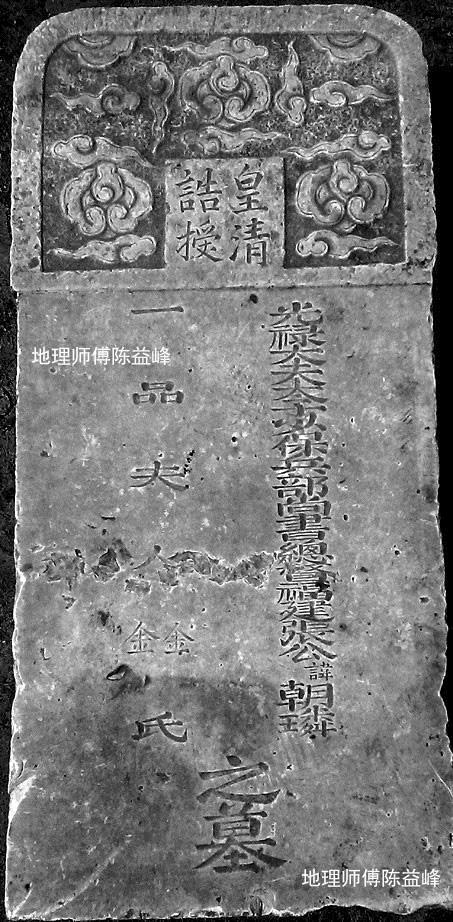 皇清
誥授
光禄大夫太子少保兵部尚書總督福建張公諱朝璘
一品夫人金金氏
之墓
地理师傅陈益峰
地理师傅陈益峰